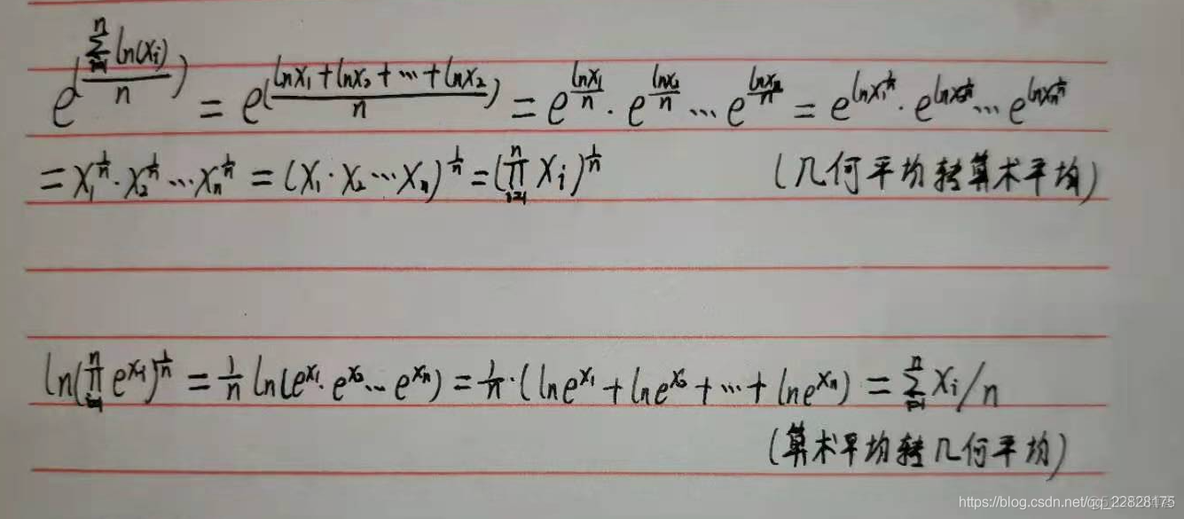 e^(\frac{\sum_{i=1}^{n} ln(x_i)}{n}) = e^(\frac{lnx_1+lnx_2+⋯+lnx_2}{n}) = e^{\frac{lnx_1}{n}}·e^{\frac{lnx_2}{n}}⋯e^{\frac{lnx_n}{n}} = e^{lnx_1^{\frac{1}{n}}}·e^{lnx_2^{\frac{1}{n}}}⋯e^{lnx_n^{\frac{1}{n}}}
= x_1^{\frac{1}{n}}·x_2^{\frac{1}{n}}⋯x_n^{\frac{1}{n}} = (x_1·x_2⋯x_n)^{\frac{1}{n}} = (\prod_{i=1}^{n} x_i)^{\frac{1}{n}} (几何平均转算术平均)
ln(\prod_{i=1}^{n} e^{x_i})^{\frac{1}{n}} = \frac{1}{n} ln(e^{x_1}·e^{x_2}⋯e^{x_n}) = \frac{1}{n}·(lne^{x_1}+lne^{x_2}+⋯+lne^{x_n}) = \sum_{i=1}^{n} x_i/n
(算术平均转几何平均)
https://blog.csdn.net/qq_22828175